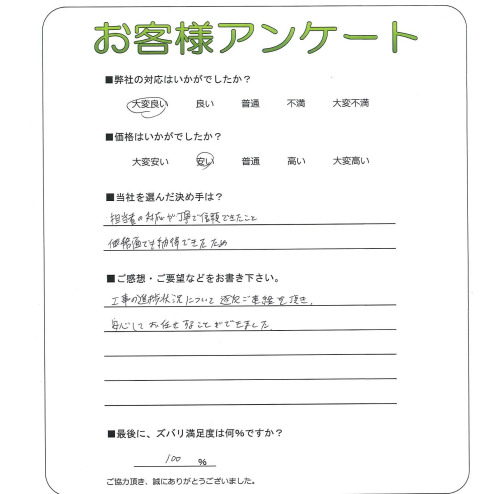 お客様アンケート
■弊社の対応はいかがでしたか?
大変良い 良い 普通 不満 大変不満
■価格はいかがでしたか?
大変安い 安い 普通 高い 大変高い
■当社を選んだ決め手は?
担当者の対応が丁寧で信頼できたこと
価格面でも納得できたため
■ご感想・ご要望などをお書き下さい。
工事の進捗状況について逐次ご連絡を頂き、
安心してお任せすることができました。
■最後に、ズバリ満足度は何%ですか?
100 %
ご協力頂き、誠にありがとうございました。